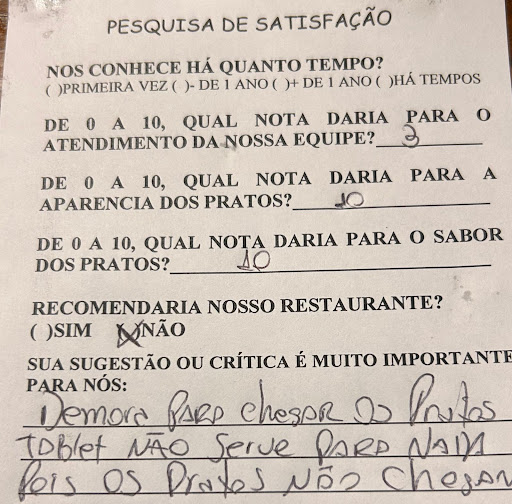 PESQUISA DE SATISFAÇÃO
NOS CONHECE HÁ QUANTO TEMPO?
( )PRIMEIRA VEZ ( )- DE 1 ANO ( )+ DE 1 ANO ( )HÁ TEMPOS
DE 0 A 10, QUAL NOTA DARIA PARA O
ATENDIMENTO DA NOSSA EQUIPE? 3
DE 0 A 10, QUAL NOTA DARIA PARA A
APARENCIA DOS PRATOS? 10
DE 0 A 10, QUAL NOTA DARIA PARA O SABOR
DOS PRATOS? 10
RECOMENDARIA NOSSO RESTAURANTE?
( )SIM (X)NÃO
SUA SUGESTÃO OU CRÍTICA É MUITO IMPORTANTE
PARA NÓS:
Demora PARA chegar Os Pratos
TABlet NÃO Serve PARA NADA
Pois OS Pratos NÃO Chegam